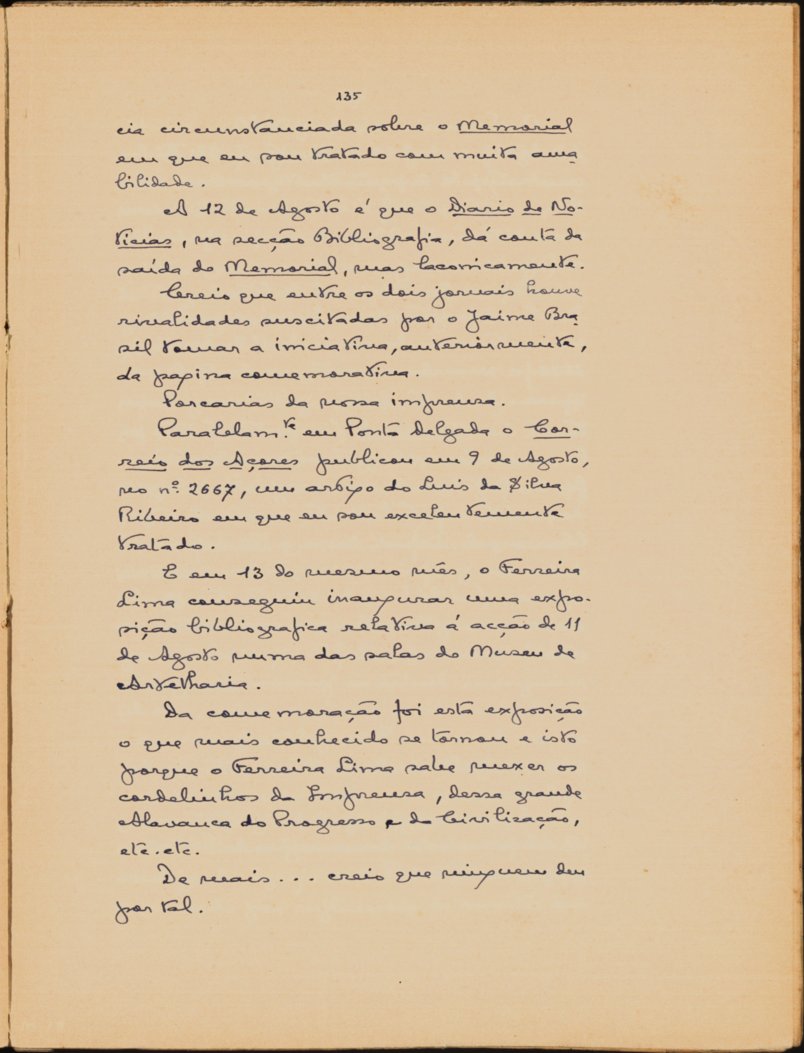 135
cia circunstanciada sobre o Memorial
em que eu sou tratado com muita ama
bilidade.
A 12 de Agosto é que o Diario de No-
ticias, na secção Bibliografia, dá conta da
saída do Memorial, mas laconicamente.
Creio que entre os dois jornais houve
rivalidades suscitadas por o Jaime Bra
sil tomar a iniciativa, anteriormente,
da pagina comemorativa.
Porcarias da nossa imprensa.
Paralelam.te em Ponta Delgada o Cor-
reio dos Açores publicou em 9 de Agosto,
no nº. 2667, um artigo do Luis da Silva
Ribeiro em que eu sou excelentemente
tratado.
E em 13 do mesmo mês, o Ferreira
Lima conseguiu inaugurar uma expo-
sição bibliografica relativa á acção de 11
de Agosto numa das salas do Museu de
Artelharia.
Da comemoração foi esta exposição
o que mais conhecido se tornou e isto
porque o Ferreira Lima sabe mexer os
cordelinhos da Imprensa, dessa grande
Alavanca do Progresso e da Civilização,
etc. etc.
De mais... creio que ninguem deu
por tal.